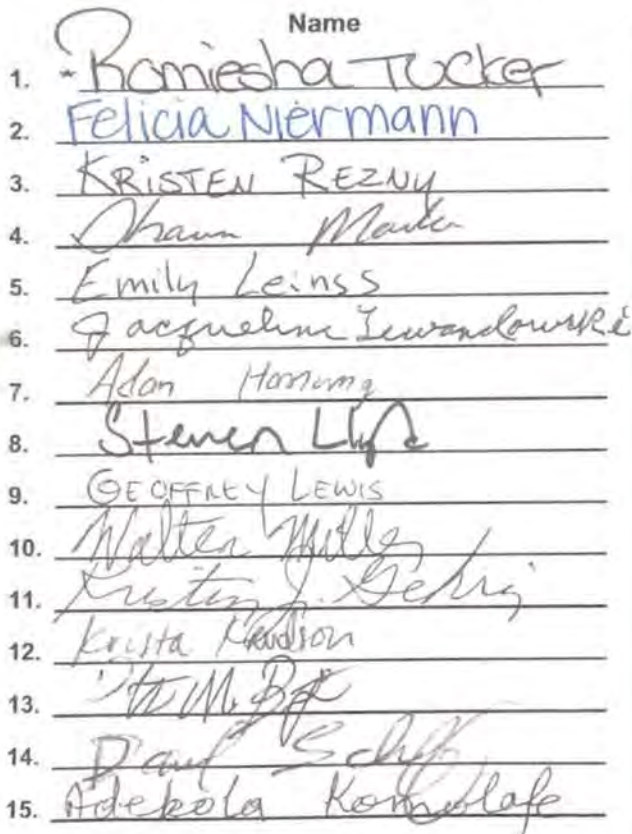 Name
1. Romiesha Tucker
2. Felicia Niermann
3. KRISTEN REZNY
4. Shawn
5. Emily Leinss
6. Jacqueline Lewandowski
7. Adam
8. Steven
9. GEOFFREY LEWIS
10. Walter Miller
11. Kristin J. Gehrig
12. Krista Knudson
13.
14.
15. Adebola Komolafe